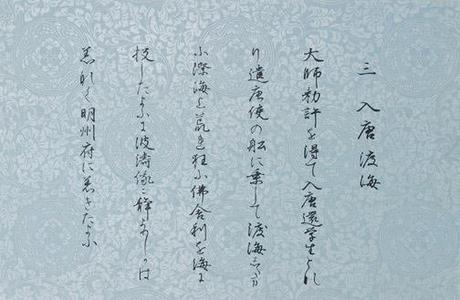 三 入唐渡海
大師勅許を得て入唐還学生とな
り遣唐使の舩に乗して渡海したま
ふ際海上荒れ狂ふ佛舎利を海に
投したまふに波濤俄に静まりしかは
恙なく明州府に着きたまふ